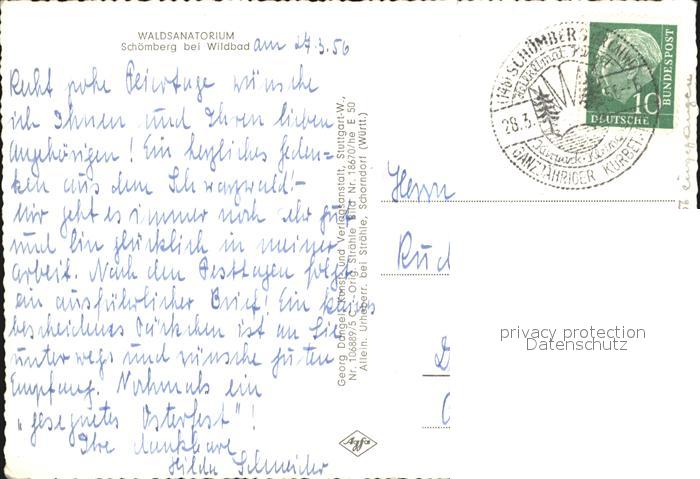 WALDSANATORIUM
Schömberg bei Wildbad
am 27.3.56
Recht frohe Feiertage wünsche
ich Ihnen und Ihren lieben
Angehörigen! Ein herzliches Geden-
ken aus dem Schwarzwald!-
Mir geht es immer noch sehr gut
und bin glücklich in meiner
Arbeit. Nach den Festtagen folgt
ein ausführlicher Brief! Ein kleines
bescheidenes Päckchen ist an Sie
unterwegs und wünsche guten
Empfang. Nochmals ein
"gesegnetes Osterfest"!
Ihre dankbare
Hilde Schneider
Georg Dangel, Kunst und Verlagsanstalt, Stuttgart-W.,
Nr. 106889/5 C - Orig. Strähle Bild Nr. 186/0/he E 50
Allein. Urheberr. bei Strähle, Schorndorf (Württ.)
Agfa
SCHÖMBERG
28.3.
GANZJÄHRIGER KURBET
10
DEUTSCHE
BUNDESPOST
Herrn
Rud
privacy protection
Datenschutz